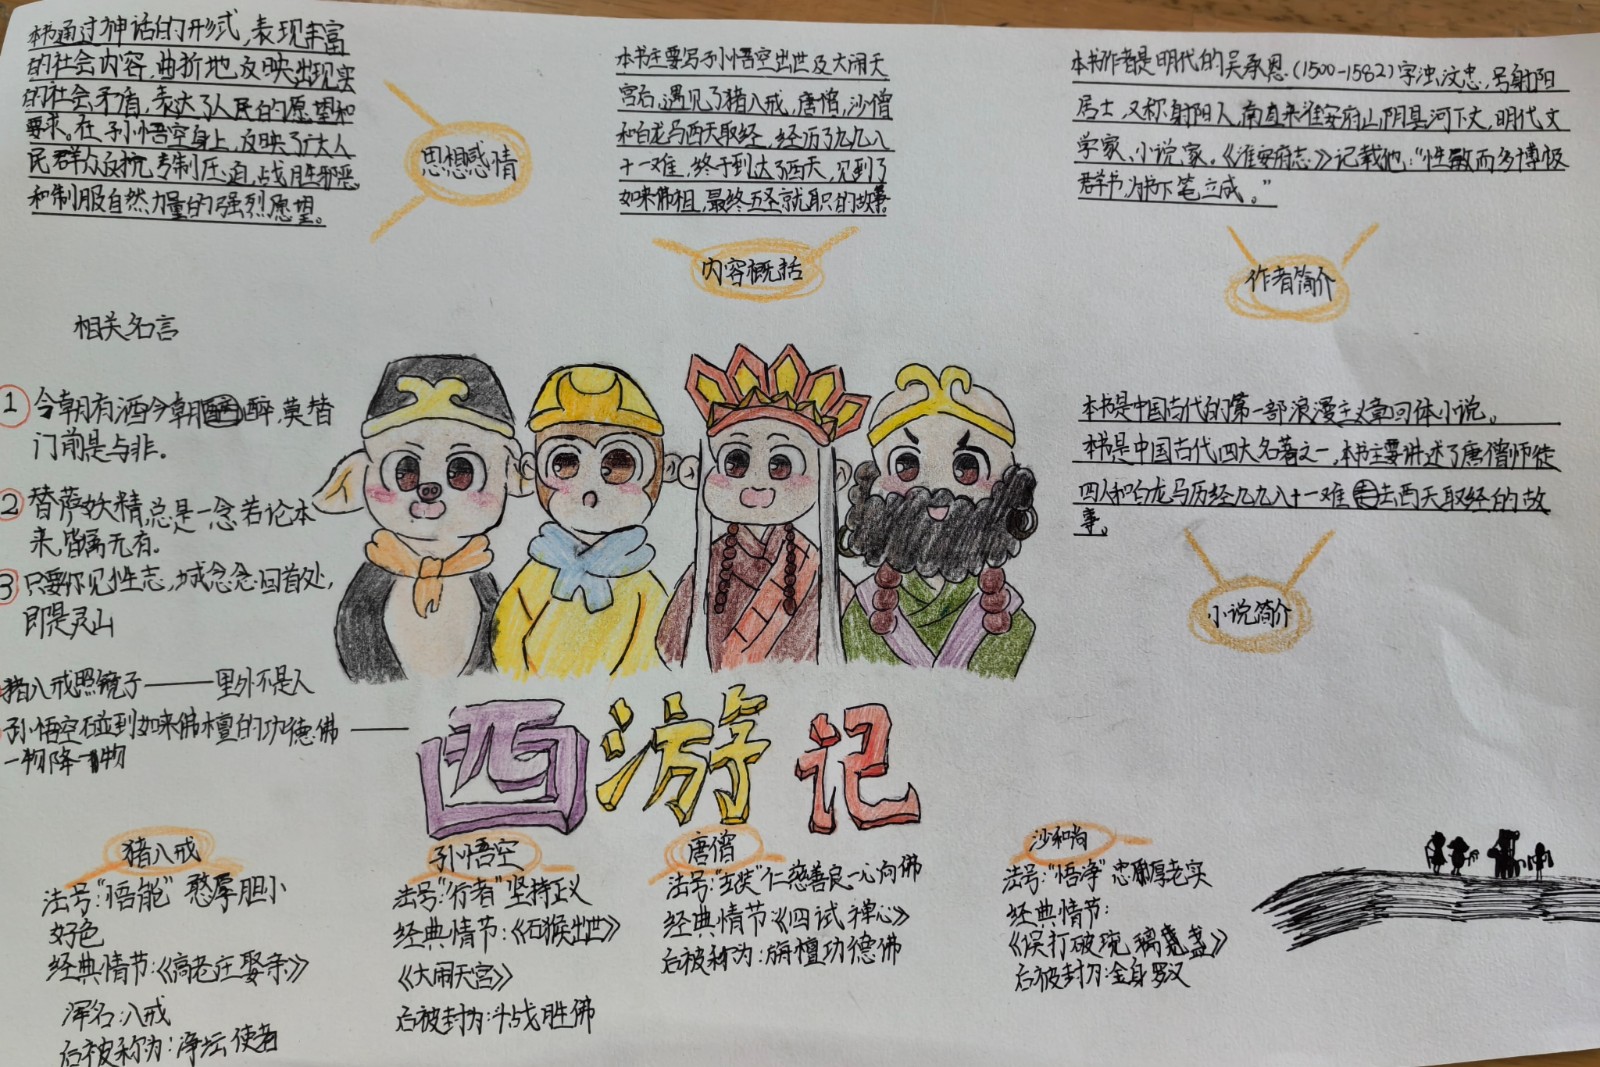 本书通过神话的形式,表现丰富
的社会内容,曲折地反映出现实
的社会矛盾,表达了人民的愿望和
要求。在孙悟空身上,反映了广大人
民群众反抗专制压迫,战胜邪恶,
和制服自然力量的强烈愿望。
思想感情
本书主要写孙悟空出世及大闹天
宫后,遇见了猪八戒,唐僧,沙僧
和白龙马西天取经,经历九九八
十一难,终于到达了西天,见到了
如来佛祖,最终五圣就职的故事。
内容概括
本书作者是明代的吴承恩(1500-1582)字汝忠,号射阳
居士,又称射阳人,南直隶淮安府山阴县河下人,明代文
学家、小说家。《淮安府志》记载他:“性敏而多博极
群书为下笔立成。”
作者简介
相关名言
1 今朝有酒今朝醉,莫替
门前是与非。
2 菩萨妖精,总是一念若论本
来,皆属无有。
3 只要你见性志诚念念回首处,
即是灵山
猪八戒照镜子——里外不是人
孙悟空碰到如来佛檀的功德佛——
一物降一物
本书是中国古代的第一部浪漫主义章回体小说。
本书是中国古代四大名著之一,本书主要讲述了唐僧师徒
四人和白龙马历经九九八十一难去西天取经的故
事。
小说简介
西游记
猪八戒
法号:“悟能” 憨厚胆小
好色
经典情节:《高老庄娶亲》
浑名:八戒
后被称为:净坛使者
孙悟空
法号:“行者”坚持正义
经典情节:《石猴出世》
《大闹天宫》
后被封为:斗战胜佛
唐僧
法号:“玄奘”仁慈善良一心向佛
经典情节:《四试禅心》
后被称为:旃檀功德佛
沙和尚
法号:“悟净”忠厚老实
经典情节:
《误打破琉璃盏》
后被封为:金身罗汉